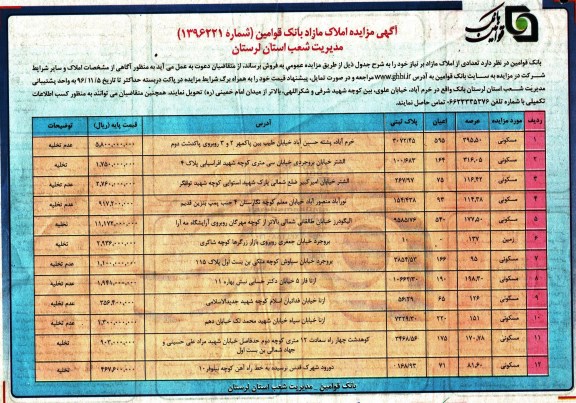 بانک قوامین
آگهی مزایده املاک مازاد بانک قوامین (شماره ۱۳۹۶۲۲۱)
مدیریت شعب استان لرستان
بانک قوامین در نظر دارد تعدادی از املاک مازاد بر نیاز خود را به شرح جدول ذیل از طریق مزایده عمومی به فروش برساند، از متقاضیان دعوت به عمل می آید به منظور آگاهی از مشخصات املاک و سایر شرایط
شرکت در مزایده به سایت بانک قوامین به آدرس www.ghbi.ir مراجعه و در صورت تمایل، پیشنهاد قیمت خود را به همراه برگ شرایط مزایده در پاکت دربسته حداکثر تا تاریخ ۹۶/۱۱/۵ به واحد پشتیبانی
مدیریت شعب استان لرستان بانک واقع در خرم آباد، خیابان علوی، بین کوچه شهید شرفی و شکراللهی، بالاتر از میدان امام خمینی (ره) تحویل نمایند. همچنین متقاضیان می توانند به منظور کسب اطلاعات
تکمیلی با شماره تلفن ۰۶۶۳۳۳۳۵۳۷۶ تماس حاصل نمایند.
ردیف مورد مزایده عرصه اعیان پلاک ثبتی آدرس قیمت پایه (ریال) توضیحات
۱ مسکونی ۳۹۵,۵۰ ۵۹۵ ۳۰۷۲/۴۵ خرم آباد، پشته حسین آباد خیابان طبیب بین پاکمهر ۲ و ۳ روبروی پاکدشت دوم ۵,۸۰۰,۰۰۰,۰۰۰ عدم تخلیه
۲ مسکونی ۳۱۶,۰۵ ۱۶۴ ۱۰۰/۶۸۳ الشتر خیابان بروجردی خیابان سی متری کوچه شهید افراسیابی پلاک ۴ ۱,۷۵۰,۰۰۰,۰۰۰ عدم تخلیه
۳ مسکونی ۱۱۶,۴۲ ۷۵ ۲۶۷/۹۷ الشتر خیابان امیرکبیر ضلع شمالی پارک شهید استوایی کوچه شهید توفگر ۲,۷۶۰,۰۰۰,۰۰۰ عدم تخلیه
۴ مسکونی ۱۱۴,۳۸ ۹۳ ۱۵۴/۴۳۸ نورآباد منصور آباد خیابان معلم کوچه نگارستان ۴ جنب پمپ بنزین قدیم ۹۱۷,۲۰۰,۰۰۰ عدم تخلیه
۵ مسکونی ۱۷۷,۵۰ ۵۴۰ ۹۵۸۵/۷۶ الیگودرز خیابان طالقانی شمالی بالاتر از کوچه مهرگان روبروی آرایشگاه مه آرا ۱۱,۱۷۲,۰۰۰,۰۰۰ تخلیه
۶ زمین ۱۳۷ ۰ ۱۰ بروجرد خیابان جعفری روبروی بازار زرگرها کوچه شاکری ۲,۹۳۶,۰۰۰,۰۰۰ تخلیه
۷ مسکونی ۹۵ ۱۶۶ ۳۸۵۳/۵۲ بروجرد خیابان سیاوش کوچه ملکی بن بست اول پلاک ۱۱۵ ۱,۱۰۰,۰۰۰,۰۰۰ عدم تخلیه
۸ مسکونی ۱۹۸,۳۰ ۱۹۰ ۱۰۶۶۲/۳۰ ازنا فاز ۵ خیابان دکتر حسابی نبش بهاره ۱۱ ۱,۹۴۱,۰۰۰,۰۰۰ عدم تخلیه
۹ مسکونی ۱۲۶ ۶۵ ۵۶/۴۹ ازنا خیابان فدائیان اسلام کوچه شهید حمیدالاسلامی ۳۵۶,۴۰۰,۰۰۰ عدم تخلیه
۱۰ مسکونی ۱۵۱ ۲۲۰ ۷۳۲۹/۳۰ ازنا خیابان سپاه خیابان شهید محمد لک خیابان دهم ۲,۳۰۰,۰۰۰,۰۰۰ عدم تخلیه
۱۱ مسکونی ۱۷۰,۷۸ ۱۷۵ ۳۴۶۸/۵۶ کوهدشت چهار راه سعادت ۱۲ متری کوچه دوم حدفاصل خیابان شهید مراد علی حسینی و
جهاد شمالی بن بست اول ۹۰۳,۰۰۰,۰۰۰ تخلیه
۱۲ مسکونی ۸۱,۶۰ ۷۱ ۱۶۸/۹۳ دورود شهرک قدس نرسیده به خط راه آهن کوچه نیلوفر۱۰ ۴۶۷,۶۰۰,۰۰۰ تخلیه
بانک قوامین _ مدیریت شعب استان لرستان